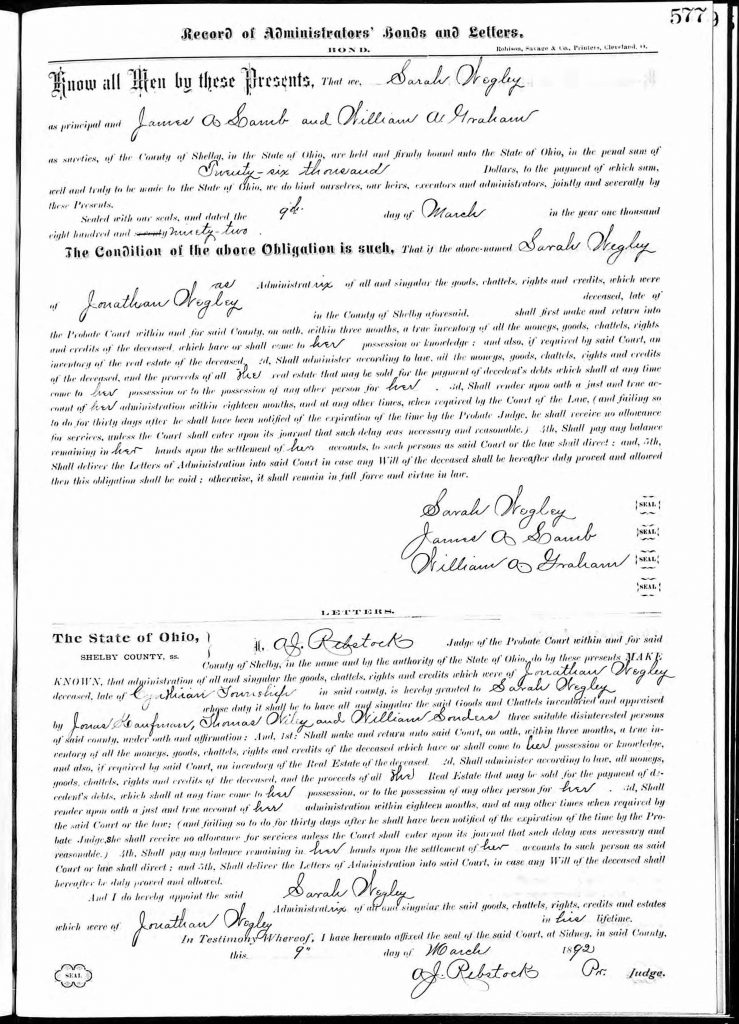 577
Record of Administrators' Bonds and Letters.
BOND.
Robison, Savage & Co., Printers, Cleveland, O.
Know all Men by these Presents, That we, Sarah Wegley
as principal and James A Lamb and William A Graham
as sureties, of the County of Shelby, in the State of Ohio, are held and firmly bound unto the State of Ohio, in the penal sum of
Twenty-six thousand Dollars, to the payment of which sum,
well and truly to be made to the State of Ohio, we do bind ourselves, our heirs, executors and administrators, jointly and severally by
these Presents.
Sealed with our seals, and dated the 9th day of March in the year one thousand
eight hundred and seventy ninety-two.
The Condition of the above Obligation is such, That if the above-named Sarah Wegley
as Administratrix of all and singular the goods, chattels, rights and credits, which were
of Jonathan Wegley deceased, late of
in the County of Shelby aforesaid, shall first make and return into
the Probate Court within and for said County, on oath, within three months, a true inventory of all the moneys, goods, chattels, rights
and credits of the deceased, which have or shall come to her possession or knowledge; and also, if required by said Court, an
inventory of the real estate of the deceased, 2d, Shall administer according to law, all the moneys, goods, chattels, rights and credits
of the deceased, and the proceeds of all the real estate that may be sold for the payment of decedent's debts which shall at any time
come to her possession or to the possession of any other person for her. 3d, Shall render upon oath a just and true ac-
count of her administration within eighteen months, and at any other times, when required by the Court of the Law, (and failing so
to do for thirty days after he shall have been notified of the expiration of the time by the Probate Judge, he shall receive no allowance
for services, unless the Court shall enter upon its journal that such delay was necessary and reasonable.) 4th, Shall pay any balance
remaining in her hands upon the settlement of her accounts, to such persons as said Court or the law shall direct: and, 5th,
Shall deliver the Letters of Administration into said Court in case any Will of the deceased shall be hereafter duly proved and allowed
then this obligation shall be void; otherwise, it shall remain in full force and virtue in law.
Sarah Wegley {SEAL}
James A Lamb {SEAL}
William A. Graham {SEAL}
{SEAL}
LETTERS.
The State of Ohio, } I, A.J. Rebstock Judge of the Probate Court within and for said
SHELBY COUNTY, ss. County of Shelby, in the name and by the authority of the State of Ohio, do by these presents MAKE
KNOWN, that administration of all and singular the goods, chattels, rights and credits which were of Jonathan Wegley
deceased, late of Cynthian Township in said county, is hereby granted to Sarah Wegley
whose duty it shall be to have all and singular the said Goods and Chattels inventoried and appraised
by Jonas Kaufman, Thomas Wiley and William Sonders three suitable disinterested persons
of said county, under oath and affirmation: And, 1st: Shall make and return unto said Court, on oath, within three months, a true in-
ventory of all the moneys, goods, chattels, rights and credits of the deceased which have or shall come to her possession or knowledge,
and also, if required by said Court, an inventory of the Real Estate of the deceased. 2d, Shall administer according to law, all moneys,
goods, chattels, rights and credits of the deceased, and the proceeds of all the Real Estate that may be sold for the payment of de-
cedent's debts, which shall at any time come to her possession, or to the possession of any other person for her. 3d, Shall
render upon oath a just and true account of her administration within eighteen months, and at any other times when required by
the said Court or the law; (and failing so to do for thirty days after he shall have been notified of the expiration of the time by the Pro-
bate Judge, she shall receive no allowance for services unless the Court shall enter upon its journal that such delay was necessary and
reasonable.) 4th, Shall pay any balance remaining in her hands upon the settlement of her accounts to such person as said
Court or law shall direct: and 5th, Shall deliver the Letters of Administration into said Court, in case any Will of the deceased shall
hereafter be duly proved and allowed.
And I do hereby appoint the said Sarah Wegley
Administratrix of all and singular the said goods, chattels, rights, credits and estates
which were of Jonathan Wegley in his lifetime.
In Testimony Whereof, I have hereunto affixed the seal of the said Court, at Sidney, in said County,
this 9" day of March 1892
SEAL
A.J. Rebstock Pr. Judge.